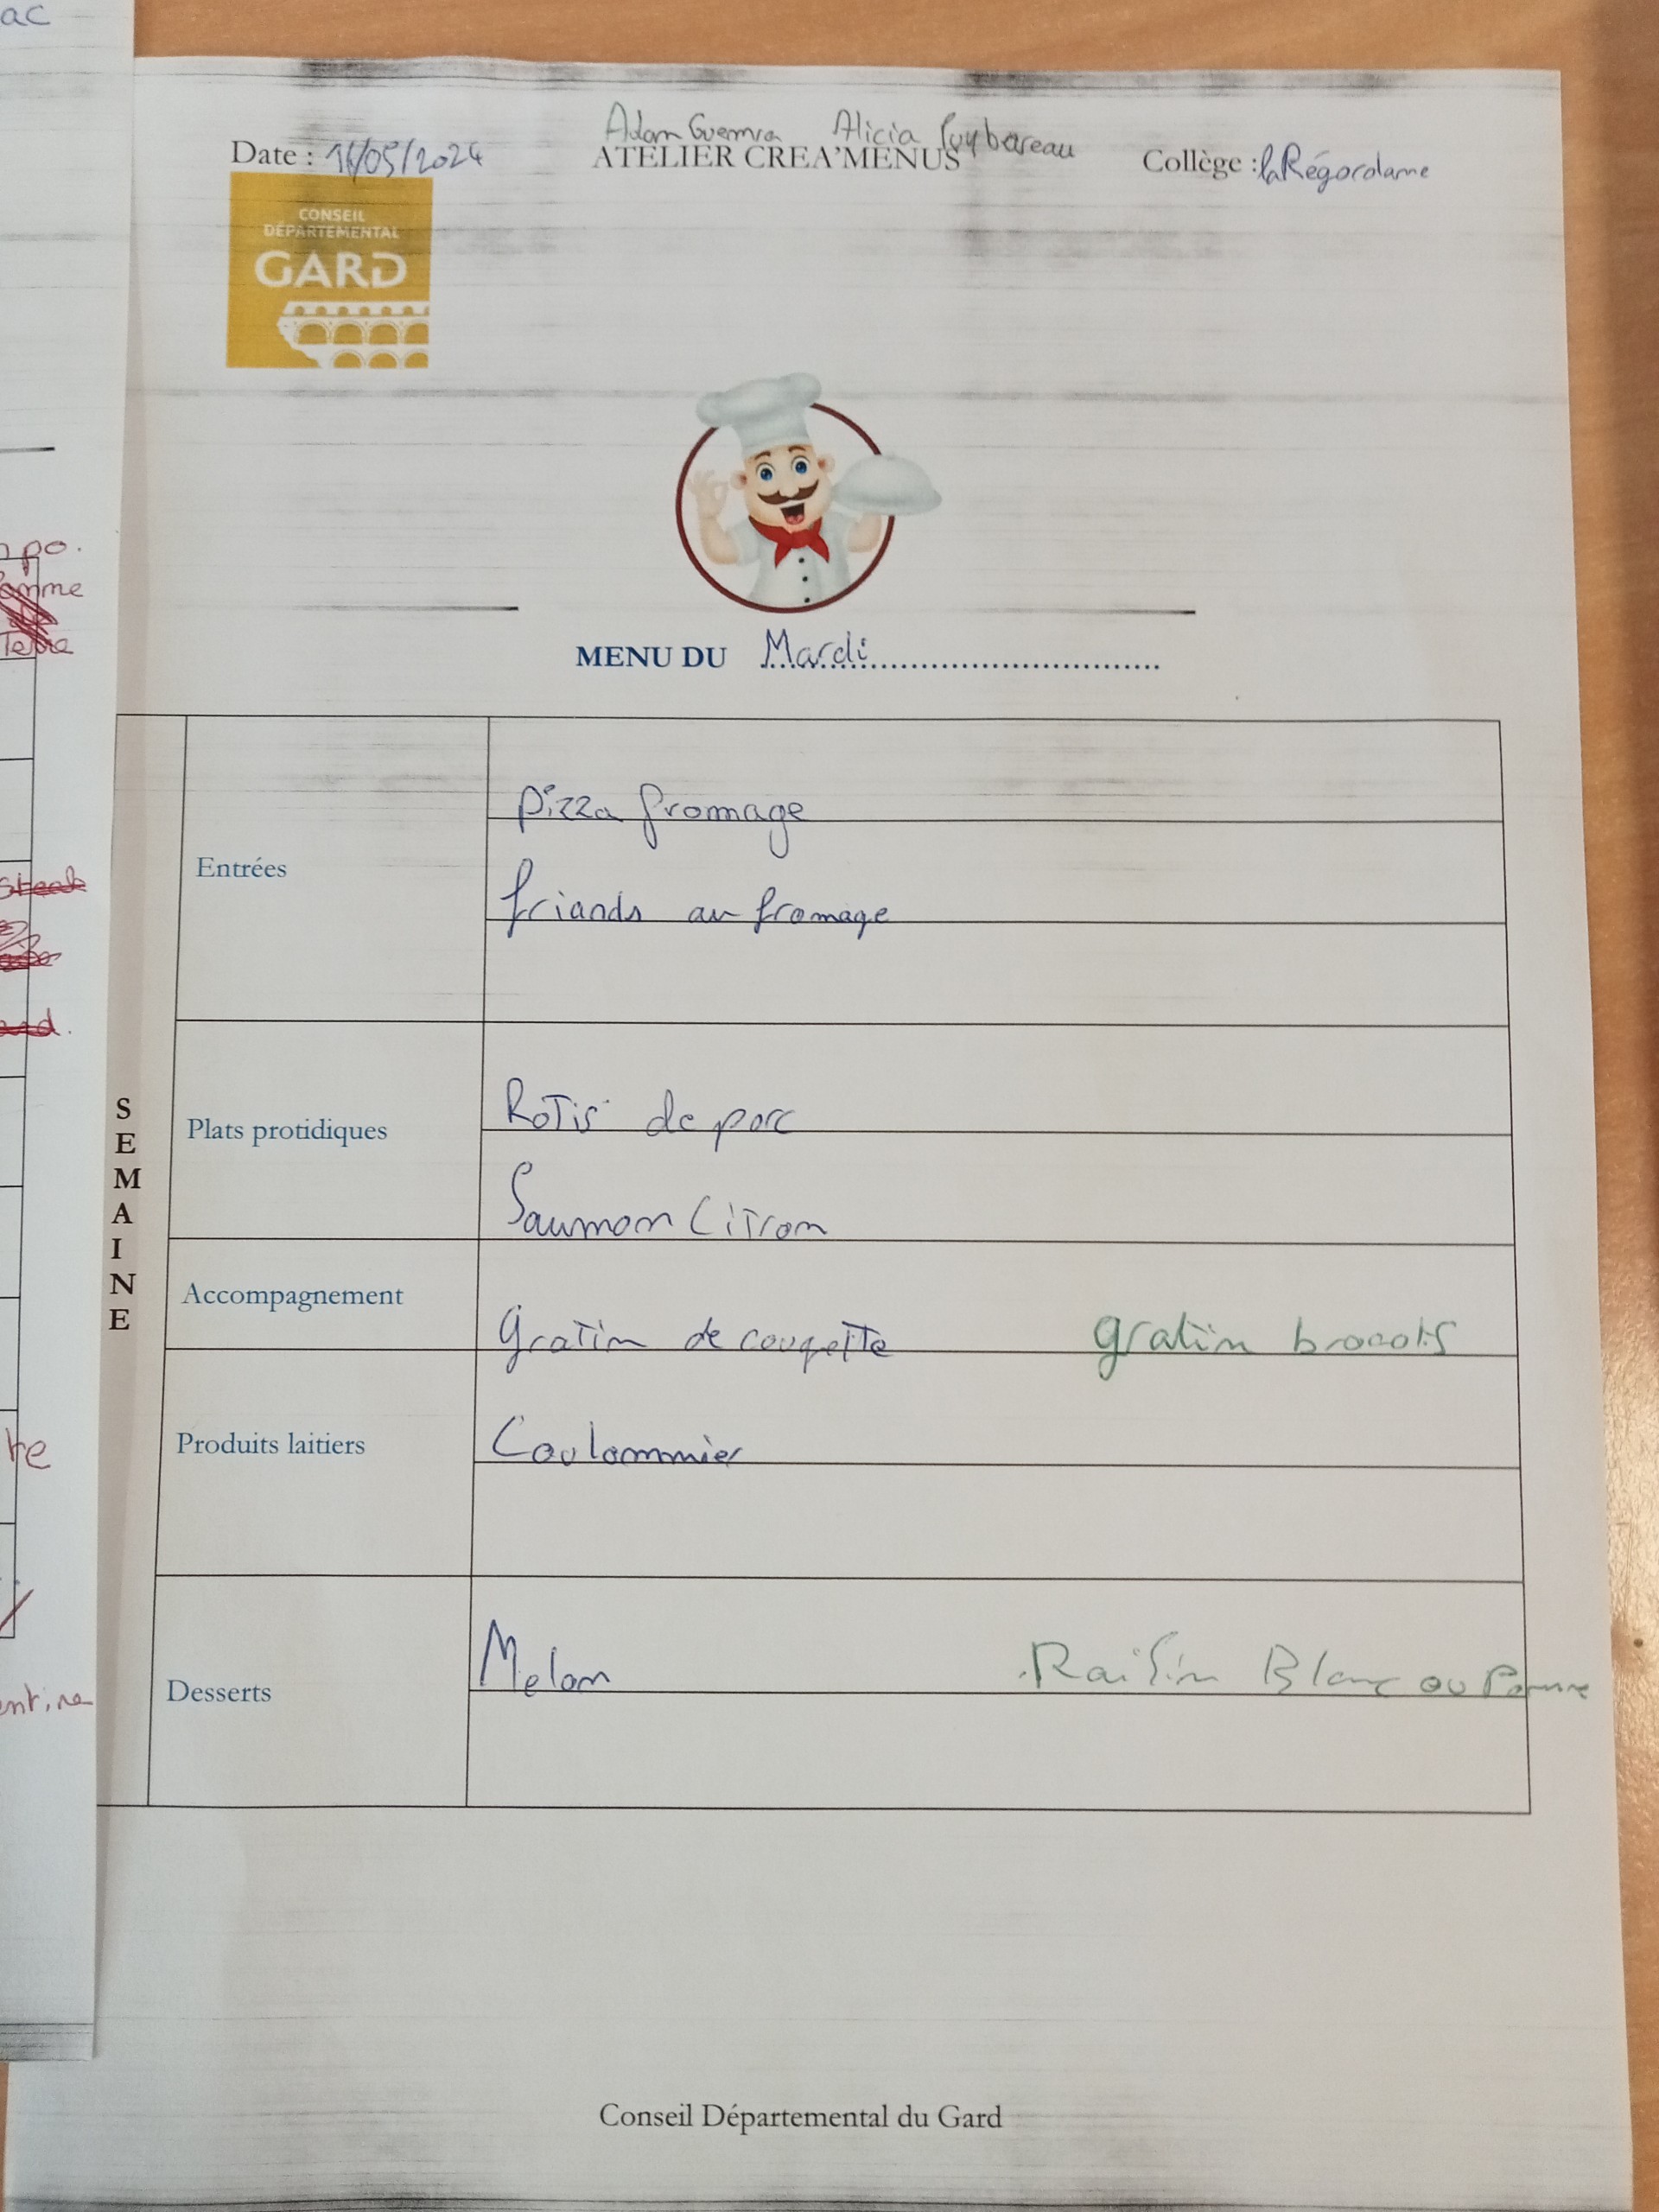 ac
Adam Guemra Alicia Puybareau
Date : 16/05/2024 ATELIER CREA'MENUS Collège : la Régordane
CONSEIL
DÉPARTEMENTAL
GARD
MENU DU Mardi
SEMAINE
Entrées
Pizza fromage
friands au fromage
Plats protidiques
Rotis de porc
Saumon Citron
Accompagnement
Gratin de cougette gratin brocolis
Produits laitiers
Coulommier
Desserts
Melon Raisin Blanc ou Pomme
Conseil Départemental du Gard